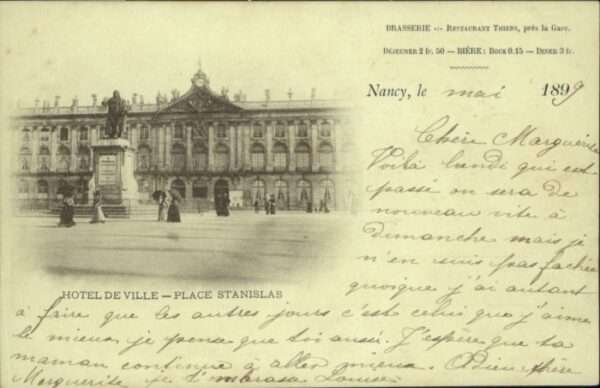 BRASSERIE -:- RESTAURANT THIERS, près la Gare.
DÉJEUNER 2 fr. 50 — BIÈRE: BOCK 0.15 — DINER 3 fr.
Nancy, le mai 1899
Chère Marguerite
Voilà lundi qui est
passé on sera de
nouveau vite à
dimanche mais je
n'en suis pas fachée
quoique j'ai autant
HOTEL DE VILLE — PLACE STANISLAS
à faire que les autres jours c'est celui que j'aime
le mieux je pense que toi aussi. J'espère que ta
maman continue à aller mieux. Adieu chère
Marguerite je t'embrasse Louise